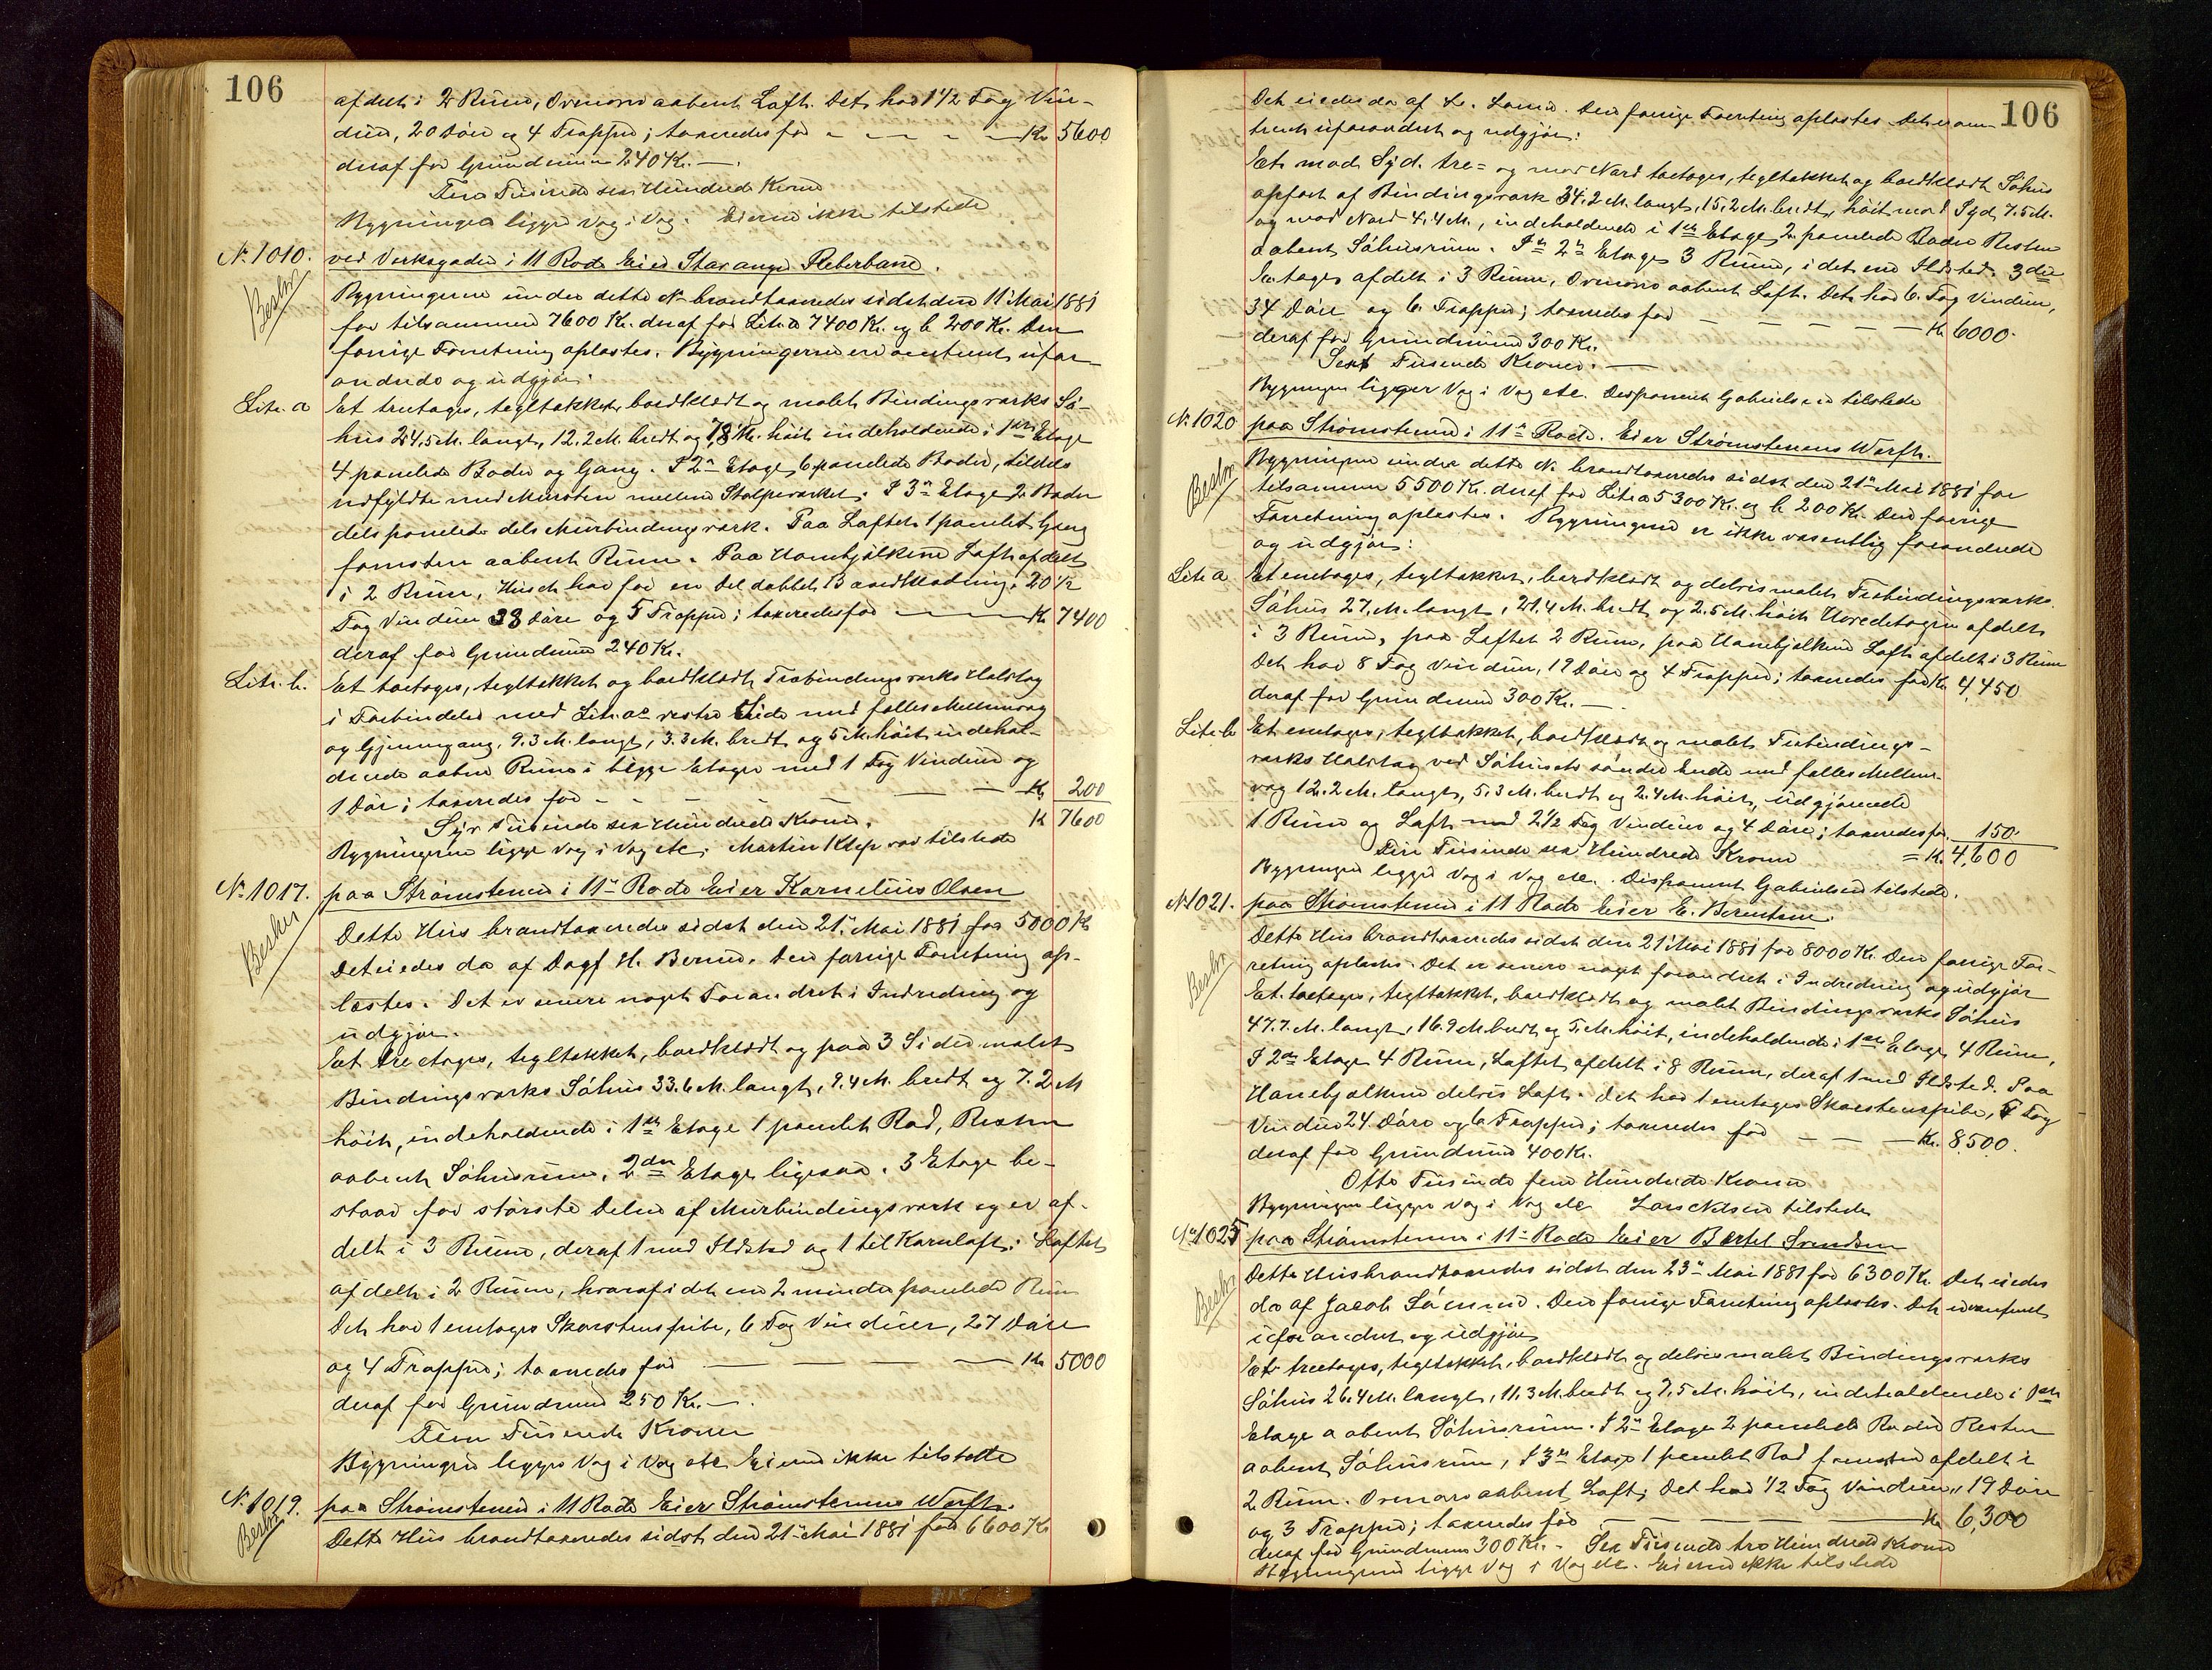 106
afdelt i 2 Rum, Ovenover aabent Loft. Det har 1 1/2 Fag Vin-
duer, 20 Döre og 4 Trapper; taxeredes for - - - - Kr 5600
deraf for Grundmur 240 Kr. —.
Fem Tusinde sex Hundrede Kroner
Bygningen ligger Vag i Vag. Eieren ikke tilstede
N. 1010. ved Verksgaden i 11 Rode Eier Stavanger Reberbane.
Beskr
Bygningerne under dette No brandtaxeredes sidst den 11' Mai 1881
for tilsammen 7600 Kr. deraf for Litr. a 7400 Kr. og b 200 Kr. Den
forrige Forretning oplæstes. Bygningerne ere omtrent ufor-
andrede og udgjör:
Litr. a Et treetages, tegltækket, bordklædt og malet Bindingsværks Sö-
hus 24.5 M. langt, 12.2 M. bredt og 7,8 M. höit indeholdende i 1ste Etage
4 panelede Boder og Gang. I 2n Etage 6 panelede Boder, tildels
udfyldte med Mursten mellem Stolpeværket. I 3n Etage 2 Boder
dels panelede dels Murbindingsværk. Paa Loftet 1 panelet Gang
forresten aabent Rum. Paa Hanebjelkerne Loft afdelt
i 2 Rum, Huset har for en Del dobbelt Bordklædning. 20 1/2
Fag Vinduer 33 Döre og 5 Trapper; taxeredes for — — Kr 7400
deraf for Grundmur 240 Kr.
Litr. b. Et toetages, tegltækket og bordklædt Træbindingsværks Halvtag
i Forbindelse med Litr. a's vestre Side med fælles Mellemvæg
og Gjennemgang, 9.3 M. langt, 3.3 M. bredt og 5 M. höit indehol-
dende aabne Rum i begge Etager med 1 Fag Vinduer og
1 Dör; taxeredes for - - - — — — Kr. 200
Syv Tusinde sex Hundrede Kroner. K 7600
Bygningerne ligge Vag i Vag etc. Martin Klep var tilstede
N. 1017. paa Strömstenen i 11te Rode Eier Kornelius Olsen
Beskr
Dette Hus brandtaxeredes sidst den 21' Mai 1881 for 5000 Kr
Det eiedes da af Dagf. H. Berner. Den forrige Forretning op-
læstes. Det er senere noget Forandret i Indredning og
udgjör.
Et treetages, tegltækket, bordklædt og paa 3 Sider malet
Bindingsværks Söhus 33.6 M. langt, 9.4 M. bredt og 7.2 M
höit, indeholdende i 1ste Etage 1 panelet Bod, Resten
aabent Söhusrum, 2den Etage ligesaa. 3 Etage be-
staar for störste Delen af Murbindingsværk og er af-
delt i 3 Rum, deraf 1 med Ildsted og 1 til Kornloft. Loftet
afdelt i 2 Rum, hvoraf i det ene 2 mindre panelede Rum
Det har 1 enetages Skorstenspibe, 6 Fag Vinduer, 27 Döre
og 4 Trapper; taxeredes for — — — — Kr 5000
deraf for Grundmur 250 Kr. —.
Fem Tusinde Kroner
Bygningen ligger Vag i Vag etc Eieren ikke tilstede
N. 1019. paa Strömstenen i 11 Rode Eier Strömstenens Werft.
Beskr
Dette Hus brandtaxeredes sidst den 21' Mai 1881 for 6600 Kr
106
Det eiedes da af L. Lomer. Den forrige Forretning oplæstes. Det er om-
trent uforandret og udgjör:
Et mod Syd tre- og mod Nord toetages, tegltækket og bordklædt Söhus
opfört af Bindingsværk 34.2 M. langt, 15.2 M. bredt, höit mod Syd 7.5 M.
og mod Nord 4.4 M., indeholdende i 1ste Etage 2 panelede Boder Resten
aabent Söhusrum. I 2n Etage 3 Rum, i det ene Ildsted. 3die
Etage afdelt i 3 Rum, Ovenover aabent Loft. Det har 6 Fag Vinduer,
34 Döre og 6 Trapper; taxeredes for — — — — — Kr 6000.
deraf for Grundmur 300 Kr.
Sex Tusinde Kroner. —
Bygningen ligger Vag i Vag etc. Disponent Gabrielsen tilstede
N. 1020 paa Strömstenen i 11te Rode. Eier Strömstenens Werft.
Beskr
Bygningerne under dette No brandtaxeredes sidst den 21' Mai 1881 for
tilsammen 5500 Kr. deraf for Litr. a 5300 Kr. og b 200 Kr. Den forrige
Forretning oplæstes. Bygningerne er ikke væsentlig forandrede
og udgjör:
Litr. a Et enetages, tegltækket, bordklædt og delvis malet Træbindingsværks
Söhus 27. M. langt, 21.4 M. bredt og 2.5 M. höit Hovedetagen afdelt
i 3 Rum, paa Loftet 2 Rum, paa Hanebjelkerne Loft afdelt i 3 Rum
Det har 8 Fag Vinduer, 19 Döre og 4 Trapper; taxeredes for Kr. 4,450
deraf for Grundmur 300 Kr. —.
Litr. b Et enetages, tegltækket, bordklædt og malet Træbindings-
værks Halvtag ved Söhusets söndre Ende med fælles Mellem-
væg 12.2 M. langt, 5.3 M. bredt og 2.4 M. höit, udgjörende
1 Rum og Loft med 2 1/2 Fag Vinduer og 4 Döre; taxeredes for. 150.
Fire Tusinde sex Hundrede Kroner = K. 4,600
Bygningen ligger Vag i Vag etc. Disponent Gabrielsen tilstede.
N. 1021. paa Strömstenen i 11 Rode Eier E. Berentsen.
Beskr
Dette Hus brandtaxeredes sidst den 21' Mai 1881 for 8000 Kr. Den forrige For-
retning oplæstes. Det er senere noget forandret i Indredning og udgjör
Et toetages, tegltækket, bordklædt og malet Bindingsværks Söhus
47.7 M. langt, 16.9 M. bredt og 5 M. höit, indeholdende i 1ste Etage 4 Rum,
I 2den Etage 4 Rum, Loftet afdelt i 8 Rum, deraf 1 med Ildsted. Paa
Hanebjelkerne delvis Loft. Det har 1 enetages Skorstenspibe, 8 Fag
Vinduer 24 Döre og 6 Trapper; taxeredes for — — — Kr. 8500.
deraf for Grundmur 400 Kr.
Otte Tusinde fem Hundrede Kroner
Bygningen ligger Vag i Vag etc Lars Nilsen tilstede
No 1025 paa Strömstenen i 11te Rode Eier Bertel Svendsen
Beskr
Dette Hus brandtaxeredes sidst den 23' Mai 1881 for 6300 Kr. Det eiedes
da af Jacob Sömme. Den forrige Forretning oplæstes. Det er omtrent
uforandret og udgjör
Et treetages, tegltækket, bordklædt og delvis malet Bindingsværks
Söhus 26.4 M. langt, 11.3 M. bredt og 7.5 M. höit, indeholdende i 1ste
Etage aabent Söhusrum. I 2n Etage 2 panelede Boder Resten
aabent Söhusrum, I 3n Etage 1 panelet Bod forresten afdelt i
2 Rum. Ovenover aabent Loft; Det har 1/2 Fag Vinduer, 19 Döre
og 3 Trapper; taxeredes for — — — — Kr 6,300
deraf for Grundmur 300 Kr. - Sex Tusinde tre Hundrede Kroner
Bygningen ligger Vag i Vag etc. Eieren ikke tilstede